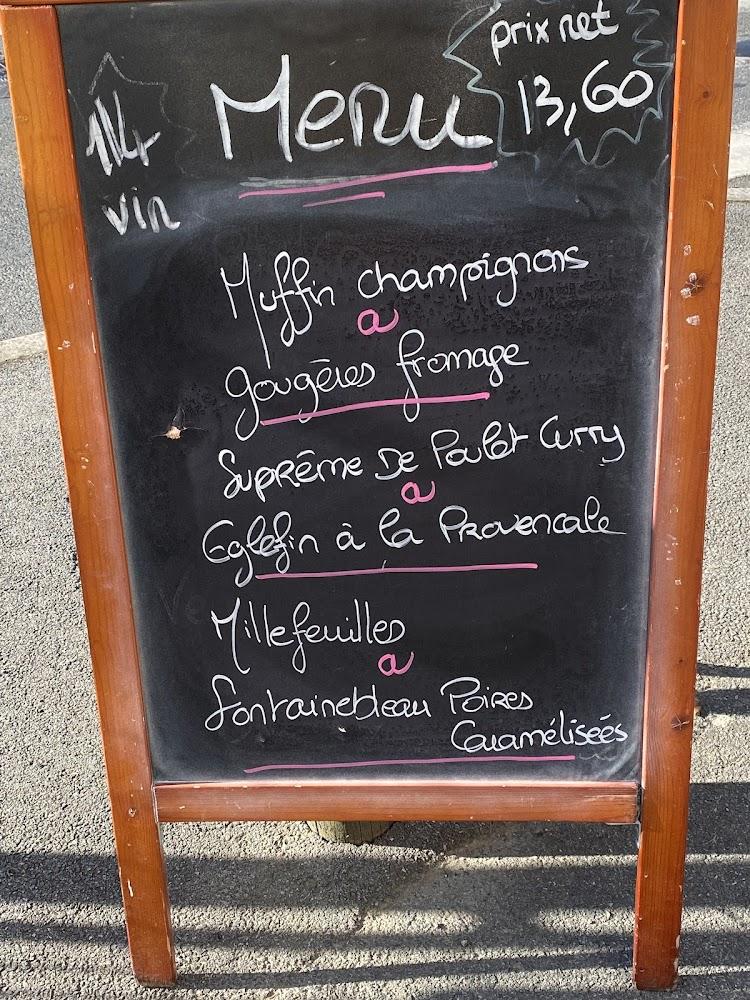 prix net
13,60
Menu
1/4
vin
Muffin champignons
a
gougères fromage
Suprême De Poulet Curry
a
Eglefin à la Provencale
Millefeuilles
a
Fontainebleau Poires
Caramélisées